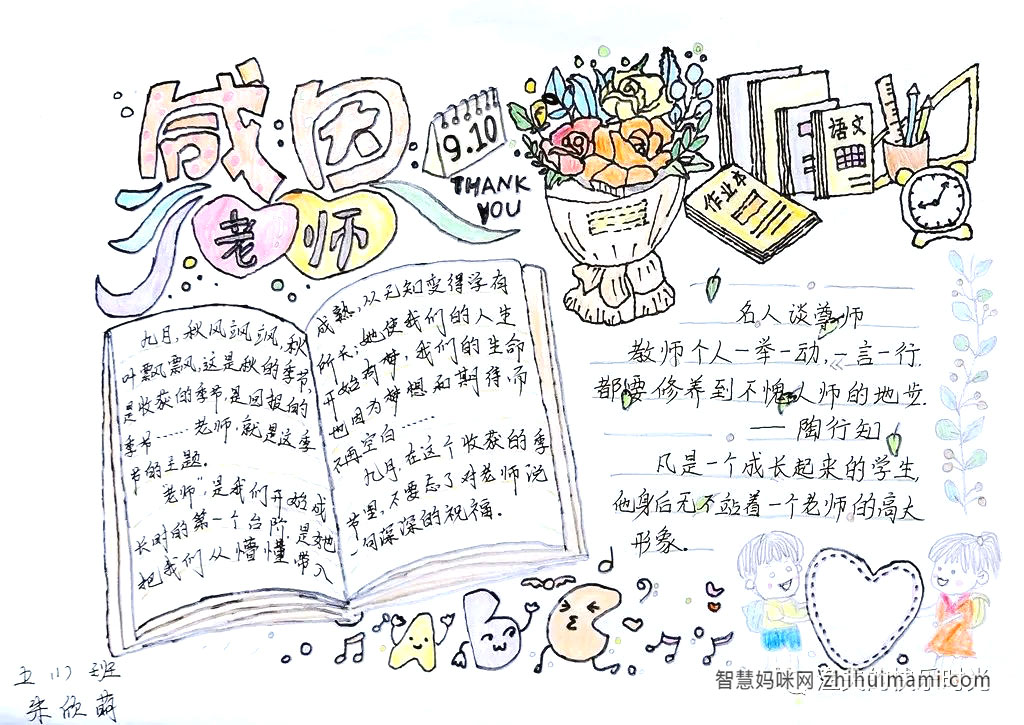 感恩
老师
9.10
THANK
YOU
语文
作业本
九月,秋风飒飒,秋
叶飘飘,这是秋的季节,
是收获的季节,是回报的
季节……老师,就是这季
节的主题。
老师",是我们开始成
长时的第一个台阶,是她
把我们从懵懂带入
成熟,从无知变得学有
所长;她使我们的人生
开始有梦,我们的生命
也因为梦想和期待而
不再空白……
九月,在这个收获的季
节里,不要忘了对老师说
一句深深的祝福。
名人谈尊师
教师个人一举一动,一言一行,
都要修养到不愧人师的地步.
——陶行知
凡是一个成长起来的学生,
他身后无不站着一个老师的高大
形象。
五(1)班
朱欣萌
智慧妈咪网 zhihuimami.com